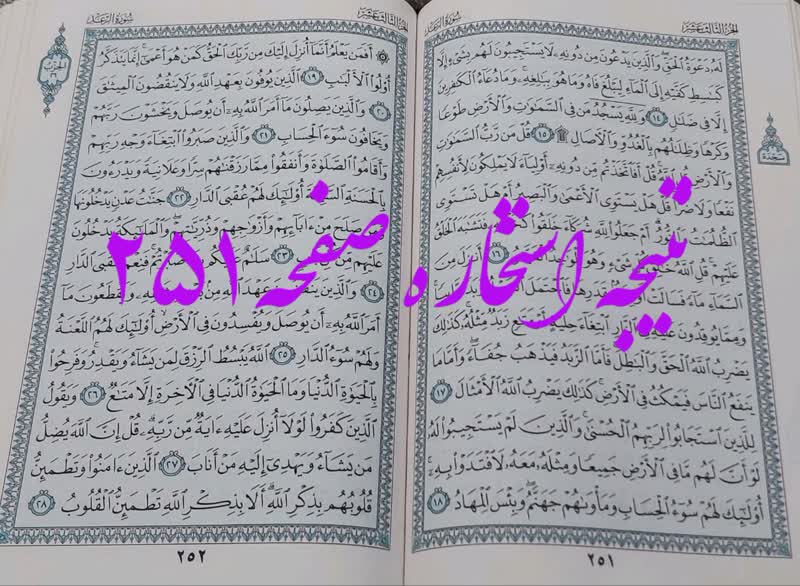 الجزء الثالث عشر
سورة الرعد
لَهُۥ دَعْوَةُ ٱلْحَقِّ وَٱلَّذِينَ يَدْعُونَ مِن دُونِهِۦ لَا يَسْتَجِيبُونَ لَهُم بِشَىْءٍ إِلَّا
كَبَٰسِطِ كَفَّيْهِ إِلَى ٱلْمَآءِ لِيَبْلُغَ فَاهُ وَمَا هُوَ بِبَٰلِغِهِۦ وَمَا دُعَآءُ ٱلْكَٰفِرِينَ
إِلَّا فِى ضَلَٰلٍ ١٤ وَلِلَّهِ يَسْجُدُ مَن فِى ٱلسَّمَٰوَٰتِ وَٱلْأَرْضِ طَوْعًا
وَكَرْهًا وَظِلَٰلُهُم بِٱلْغُدُوِّ وَٱلْءَاصَالِ ۩ ١٥ قُلْ مَن رَّبُّ ٱلسَّمَٰوَٰتِ
وَٱلْأَرْضِ قُلْ أَفَٱتَّخَذْتُم مِّن دُونِهِۦٓ أَوْلِيَآءَ لَا يَمْلِكُونَ لِأَنفُسِهِمْ
نَفْعًا وَلَا ضَرًّا قُلْ هَلْ يَسْتَوِى ٱلْأَعْمَىٰ وَٱلْبَصِيرُ أَمْ هَلْ تَسْتَوِى
ٱلظُّلُمَٰتُ وَٱلنُّورُ أَمْ جَعَلُوا۟ لِلَّهِ شُرَكَآءَ خَلَقُوا۟ فَتَشَٰبَهَ ٱلْخَلْقُ
عَلَيْهِمْ قُلِ ٱللَّهُ شَىْءٍ وَهُوَ ١٦ أَنزَلَ مِنَ
ٱلسَّمَآءِ مَآءً فَسَالَتْ فَٱحْتَمَلَ
وَمِمَّا يُوقِدُونَ عَلَيْهِ ٱلنَّارِ ٱبْتِغَآءَ حِلْيَةٍ أَوْ مَتَٰعٍ زَبَدٌ مِّثْلُهُۥ كَذَٰلِكَ
يَضْرِبُ ٱللَّهُ ٱلْحَقَّ وَٱلْبَٰطِلَ فَأَمَّا ٱلزَّبَدُ فَيَذْهَبُ جُفَآءً وَأَمَّا مَا
يَنفَعُ ٱلنَّاسَ فَيَمْكُثُ فِى ٱلْأَرْضِ كَذَٰلِكَ يَضْرِبُ ٱللَّهُ ٱلْأَمْثَالَ ١٧
لِلَّذِينَ ٱسْتَجَابُوا۟ لِرَبِّهِمُ ٱلْحُسْنَىٰ وَٱلَّذِينَ لَمْ يَسْتَجِيبُوا۟ لَهُۥ
لَوْ أَنَّ لَهُم مَّا فِى ٱلْأَرْضِ جَمِيعًا وَمِثْلَهُۥ مَعَهُۥ لَٱفْتَدَوْا۟ بِهِۦٓ
أُو۟لَٰٓئِكَ لَهُمْ سُوٓءُ ٱلْحِسَابِ وَمَأْوَىٰهُمْ جَهَنَّمُ وَبِئْسَ ٱلْمِهَادُ ١٨
سجدة
٢٥١
الجزء الثالث عشر
سورة الرعد
۞ أَفَمَن يَعْلَمُ أَنَّمَآ أُنزِلَ إِلَيْكَ مِن رَّبِّكَ ٱلْحَقُّ كَمَنْ هُوَ أَعْمَىٰٓ إِنَّمَا يَتَذَكَّرُ
أُو۟لُوا۟ ٱلْأَلْبَٰبِ ١٩ ٱلَّذِينَ يُوفُونَ بِعَهْدِ ٱللَّهِ وَلَا يَنقُضُونَ ٱلْمِيثَٰقَ
٢٠ وَٱلَّذِينَ يَصِلُونَ مَآ أَمَرَ ٱللَّهُ بِهِۦٓ أَن يُوصَلَ وَيَخْشَوْنَ رَبَّهُمْ
وَيَخَافُونَ سُوٓءَ ٱلْحِسَابِ ٢١ وَٱلَّذِينَ صَبَرُوا۟ ٱبْتِغَآءَ وَجْهِ رَبِّهِمْ
وَأَقَامُوا۟ ٱلصَّلَوٰةَ وَأَنفَقُوا۟ مِمَّا رَزَقْنَٰهُمْ سِرًّا وَعَلَانِيَةً وَيَدْرَءُونَ
بِٱلْحَسَنَةِ ٱلسَّيِّئَةَ أُو۟لَٰٓئِكَ لَهُمْ عُقْبَى ٱلدَّارِ ٢٢ جَنَّٰتُ عَدْنٍ يَدْخُلُونَهَا
وَمَن صَلَحَ مِنْ ءَابَآئِهِمْ وَأَزْوَٰجِهِمْ وَذُرِّيَّٰتِهِمْ وَٱلْمَلَٰٓئِكَةُ يَدْخُلُونَ
عَلَيْهِم مِّن ٢٣ سَلَٰمٌ صَبَرْتُمْ فَنِعْمَ عُقْبَى ٱلدَّارِ
٢٤ وَٱلَّذِينَ عَهْدَ ٱللَّهِ مِنۢ بَعْدِ وَيَقْطَعُونَ مَآ
أَمَرَ ٱللَّهُ بِهِۦٓ أَن يُوصَلَ وَيُفْسِدُونَ فِى ٱلْأَرْضِ أُو۟لَٰٓئِكَ لَهُمُ ٱللَّعْنَةُ
وَلَهُمْ سُوٓءُ ٱلدَّارِ ٢٥ ٱللَّهُ يَبْسُطُ ٱلرِّزْقَ لِمَن يَشَآءُ وَيَقْدِرُ وَفَرِحُوا۟
بِٱلْحَيَوٰةِ ٱلدُّنْيَا وَمَا ٱلْحَيَوٰةُ ٱلدُّنْيَا فِى ٱلْءَاخِرَةِ إِلَّا مَتَٰعٌ ٢٦ وَيَقُولُ
ٱلَّذِينَ كَفَرُوا۟ لَوْلَآ أُنزِلَ عَلَيْهِ ءَايَةٌ مِّن رَّبِّهِۦ قُلْ إِنَّ ٱللَّهَ يُضِلُّ
مَن يَشَآءُ وَيَهْدِىٓ إِلَيْهِ مَنْ أَنَابَ ٢٧ ٱلَّذِينَ ءَامَنُوا۟ وَتَطْمَئِنُّ
قُلُوبُهُم بِذِكْرِ ٱللَّهِ أَلَا بِذِكْرِ ٱللَّهِ تَطْمَئِنُّ ٱلْقُلُوبُ ٢٨
٢٥٢
نتیجه استخاره صفحه ۲۵۱